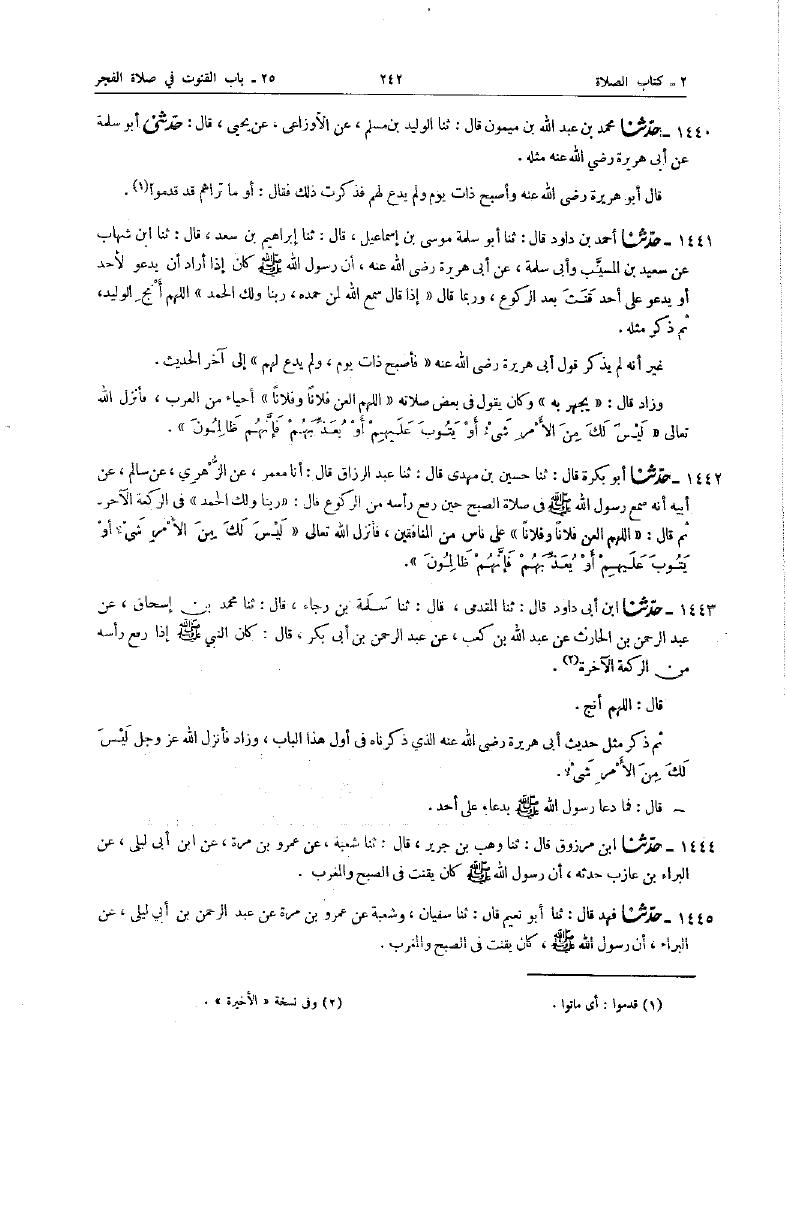 ٢ - كتاب الصلاة ٢٤٢ ٢٥ - باب القنوت في صلاة الفجر
١٤٤٠ - حَدَّثَنَا محمد بن عبد الله بن ميمون قال : ثنا الوليد بن مسلم ، عن الأوزاعى ، عن يحيى ، قال : حَدَّثَنى أبو سلمة
عن أبى هريرة رضي الله عنه مثله .
قال أبو هريرة رضى الله عنه وأصبح ذات يوم ولم يدع لهم فذكرت ذلك فقال : أو ما تراهم قد قدموا؟(١) .
١٤٤١ - حَدَّثَنَا أحمد بن داود قال : ثنا أبو سلمة موسى بن إسماعيل ، قال : ثنا إبراهيم بن سعد ، قال : ثنا ابن شهاب
عن سعيد بن المسيَّب وأبى سلمة ، عن أبى هريرة رضى الله عنه ، أن رسول الله ﷺ كان إذا أراد أن يدعو لأحد
أو يدعو على أحد قَنَتَ بعد الركوع ، وربما قال « إذا قال سمع الله لمن حمده ، ربنا ولك الحمد » اللهم أَنْجِ الوليد،
ثم ذكر مثله .
غير أنه لم يذكر قول أبى هريرة رضى الله عنه « فأصبح ذات يوم ، ولم يدع لهم » إلى آخر الحديث .
وزاد قال : « يجهر به » وكان يقول فى بعض صلاته « اللهم العن فلاناً وفلاناً » أحياء من العرب ، فأنزل الله
تعالى « لَيْسَ لَكَ مِنَ الأَمْرِ شَىْءٌ أَوْ يَتُوبَ عَلَيهِمْ أَوْ يُعَذِّبَهُمْ فَإِنَّهُم ظَالِمُونَ » .
١٤٤٢ - حَدَّثَنَا أبو بكرة قال : ثنا حسين بن مهدى قال : ثنا عبد الرزاق قال : أنا معمر ، عن الزُّهري ، عن سالم ، عن
أبيه أنه سمع رسول الله ﷺ فى صلاة الصبح حين رفع رأسه من الركوع قال : «ربنا ولك الحمد» فى الركعة الآخرة
ثم قال : « اللهم العن فلاناً وفلاناً » على ناس من المنافقين ، فأنزل الله تعالى « لَيْسَ لَكَ مِنَ الأَمْرِ شَىْءٌ أَوْ
يَتُوبَ عَلَيهِمْ أَوْ يُعَذِّبَهُمْ فَإِنَّهُمْ ظَالِمُونَ ».
١٤٤٣ - حَدَّثَنَا ابن أبى داود قال : ثنا المقدمى ، قال : ثنا سَلَمة بن رجاء ، قال : ثنا محمد بن إسحاق ، عن
عبد الرحمن بن الحارث عن عبد الله بن كعب ، عن عبد الرحمن بن أبى بكر ، قال : كان النبي ﷺ إذا رفع رأسه
من الركعة الآخرة(٢) .
قال : اللهم أنج .
ثم ذكر مثل حديث أبى هريرة رضى الله عنه الذي ذكرناه فى أول هذا الباب ، وزاد فأنزل الله عز وجل لَيْسَ
لَكَ مِنَ الأَمْرِ شَىْءٌ .
ـ قال : فما دعا رسول الله ﷺ بدعاء على أحد .
١٤٤٤ - حَدَّثَنَا ابن مرزوق قال : ثنا وهب بن جرير ، قال : ثنا شعبة ، عن عمرو بن مرة ، عن ابن أبى ليلى ، عن
البراء بن عازب حدثه ، أن رسول الله ﷺ كان يقنت فى الصبح والمغرب .
١٤٤٥ - حَدَّثَنَا فهد قال : ثنا أبو نعيم قال : ثنا سفيان ، وشعبة عن عمرو بن مرة عن عبد الرحمن بن أبي ليلى ، عن
البراء ، أن رسول الله ﷺ ، كان يقنت فى الصبح والمغرب .
(١) قدموا : أى ماتوا . (٢) وفى نسخة « الأخيرة » .